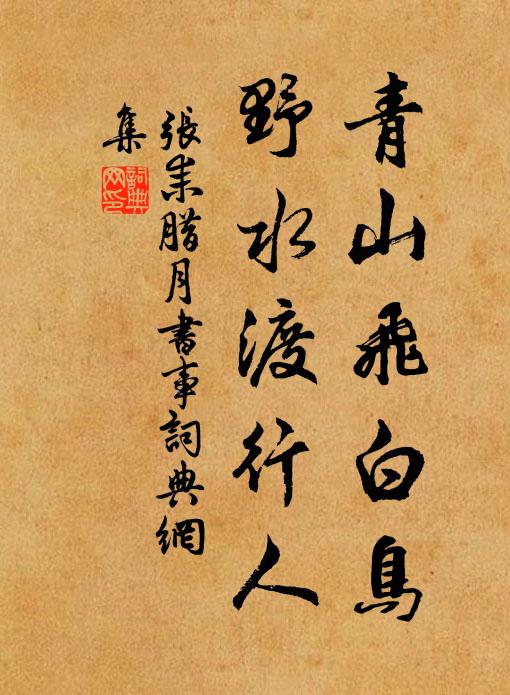 青山飛白鳥
野水渡行人
張耒腊月書事詞典網
集
詞典網印